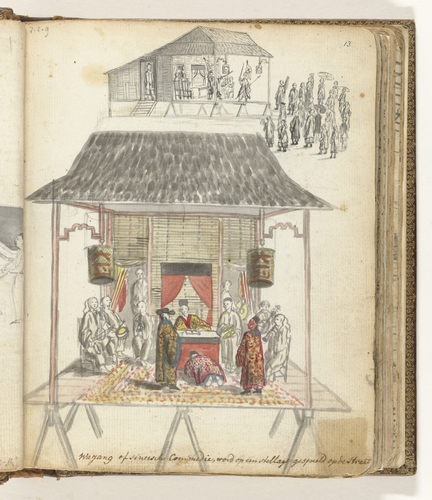 13
Wayang of sineesche Commedie, word op een stellage gespeeld op de Straat